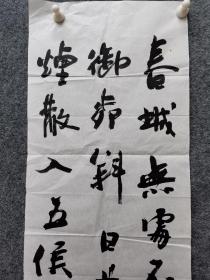 春城無處不
御柳斜日暮
煙散入五侯